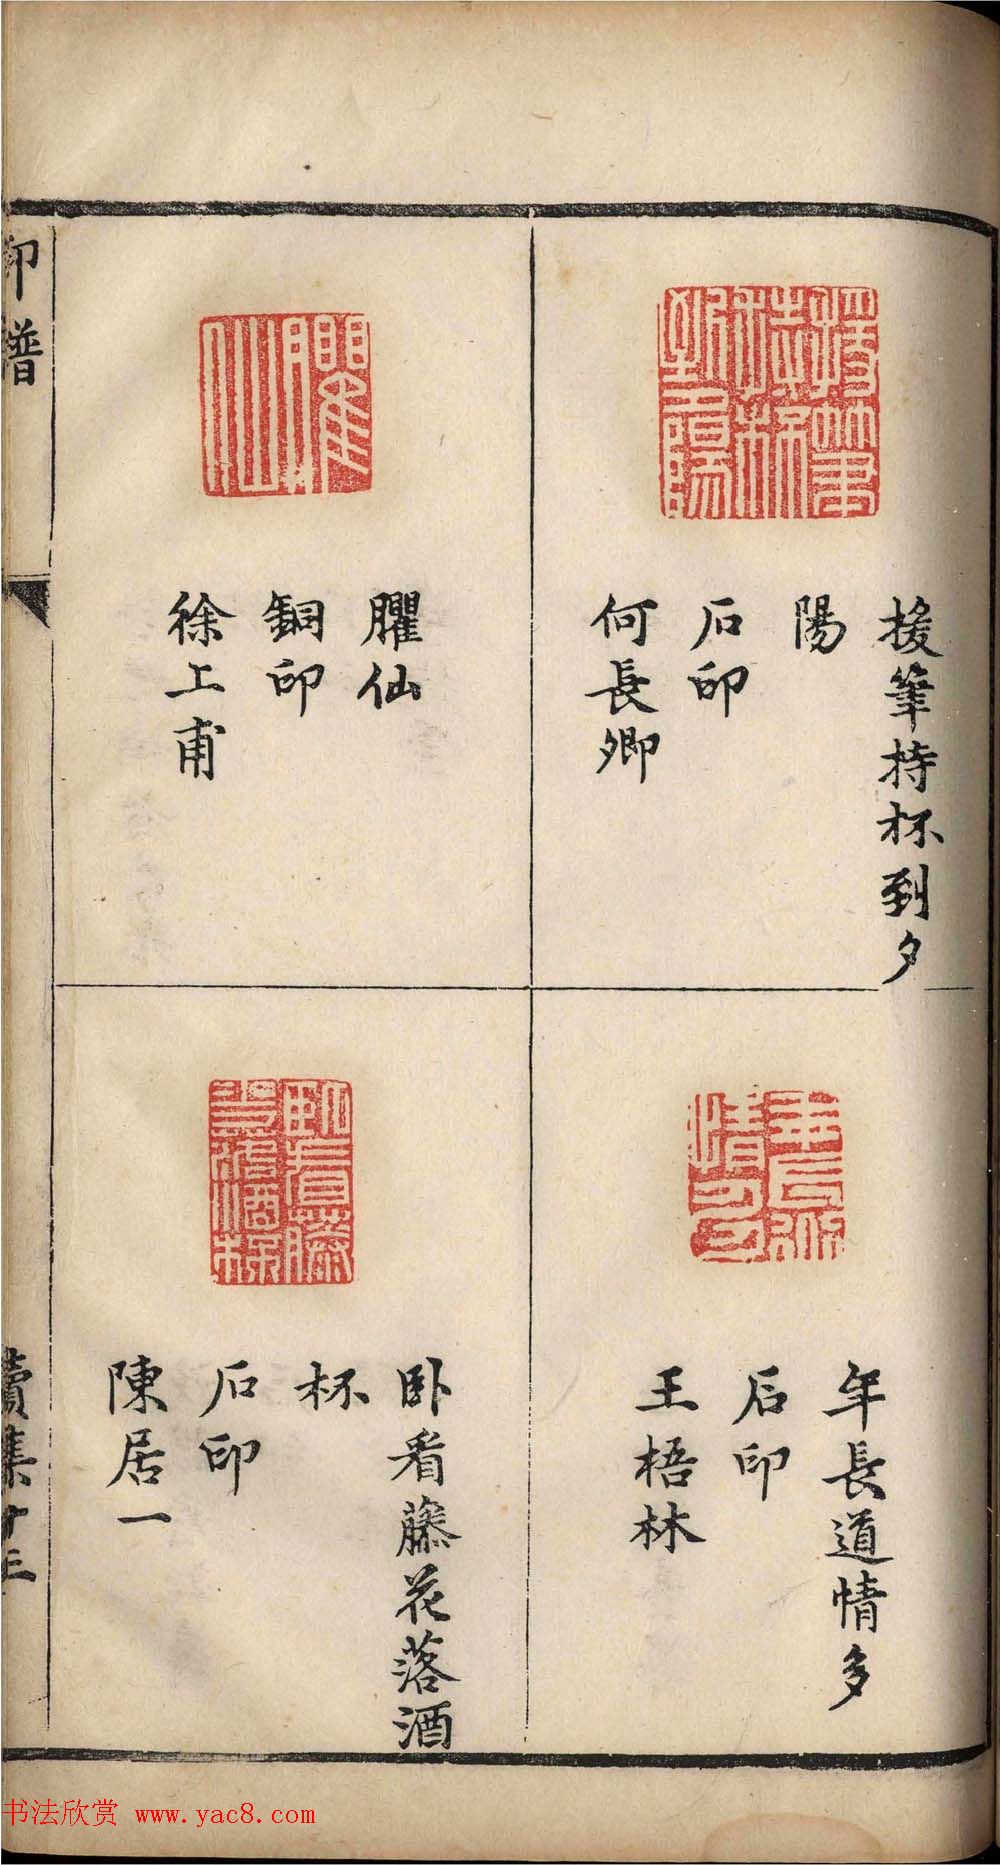 援筆持杯到夕
陽
石印
何長卿
臞仙
銅印
徐上甫
年長道情多
石印
王梧林
卧看藤花落酒
杯
石印
陳居一
印譜
續集 十三
书法欣赏 www.yac8.com